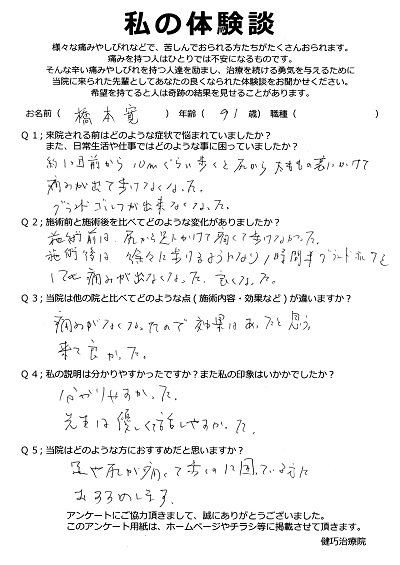 私の体験談
様々な痛みやしびれなどで、苦しんでおられる方たちがたくさんおられます。
痛みを持つ人はひとりでは不安になるものです。
そんな辛い痛みやしびれを持つ人達を励まし、治療を続ける勇気を与えるために
当院に来られた先輩としてあなたの良くなられた体験談をお聞かせください。
希望を持てると人は奇跡の結果を見せることがあります。
お名前( 橋本寛 ) 年齢( 91 歳) 職種( )
Q1;来院される前はどのような症状で悩まれていましたか?
また、日常生活や仕事ではどのような事に困っていましたか?
約1ヶ月前から10mぐらい歩くと尻から太ももの裏にかけて
痛みが出て歩けなくなった。
グランドゴルフが出来なくなった。
Q2;施術前と施術後を比べてどのような変化がありましたか?
施術前は、尻から足にかけて痛くて歩けなかった。
施術後は、徐々に歩けるようになり1時間半グランドゴルフを
しても痛みが出なくなった。良くなった。
Q3;当院は他の院と比べてどのような点(施術内容・効果など)が違いますか?
痛みがなくなったので効果はあったと思う。
来て良かった。
Q4;私の説明は分かりやすかったですか?また私の印象はいかかでしたか?
分かりやすかった。
先生は優しくて話しやすかった。
Q5;当院はどのような方におすすめだと思いますか?
足や尻が痛くて歩くのに困っている方に
おすすめします。
アンケートにご協力頂きまして、誠にありがとうございました。
このアンケート用紙は、ホームページやチラシ等に掲載させて頂きます。
健巧治療院